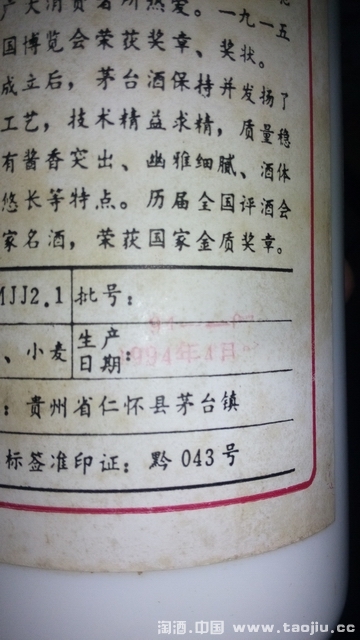 广大消费者所热爱。一九一五
国博览会荣获奖章、奖状。
成立后，茅台酒保持并发扬了
工艺，技术精益求精，质量稳
有酱香突出、幽雅细腻、酒体
悠长等特点。历届全国评酒会
家名酒，荣获国家金质奖章。
MJJ2.1 批号：
、小麦 生产日期：1994年1月
：贵州省仁怀县茅台镇
标签准印证：黔 043 号
淘酒.中国 www.taojiu.cc